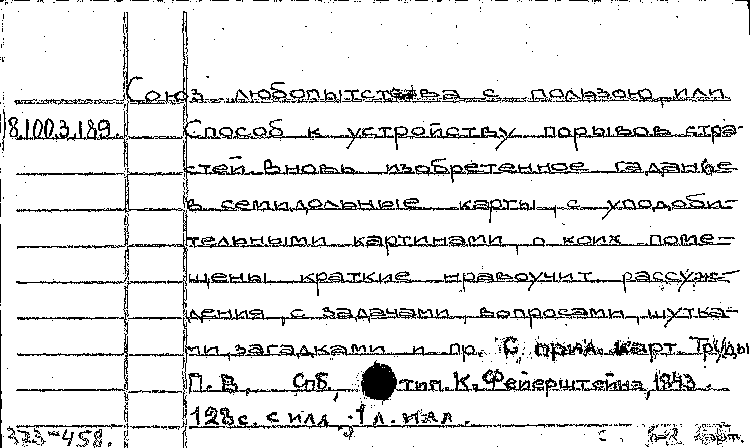 Союз любопытства с пользою, или
8.100.3.189. Способ к устройству порывов стра-
стей. Вновь изобретенное гаданье
в семидольные карты, с уподоби-
тельными картинами, о коих поме-
щены краткие нравоучит. рассуж-
дения, с задачами, вопросами, шутка-
ми, загадками и пр. С прил. карт. Труды
П. В. Спб., тип. К. Фейерштейна, 1843.
128 с. с илл., 1 л. илл.
373-458.